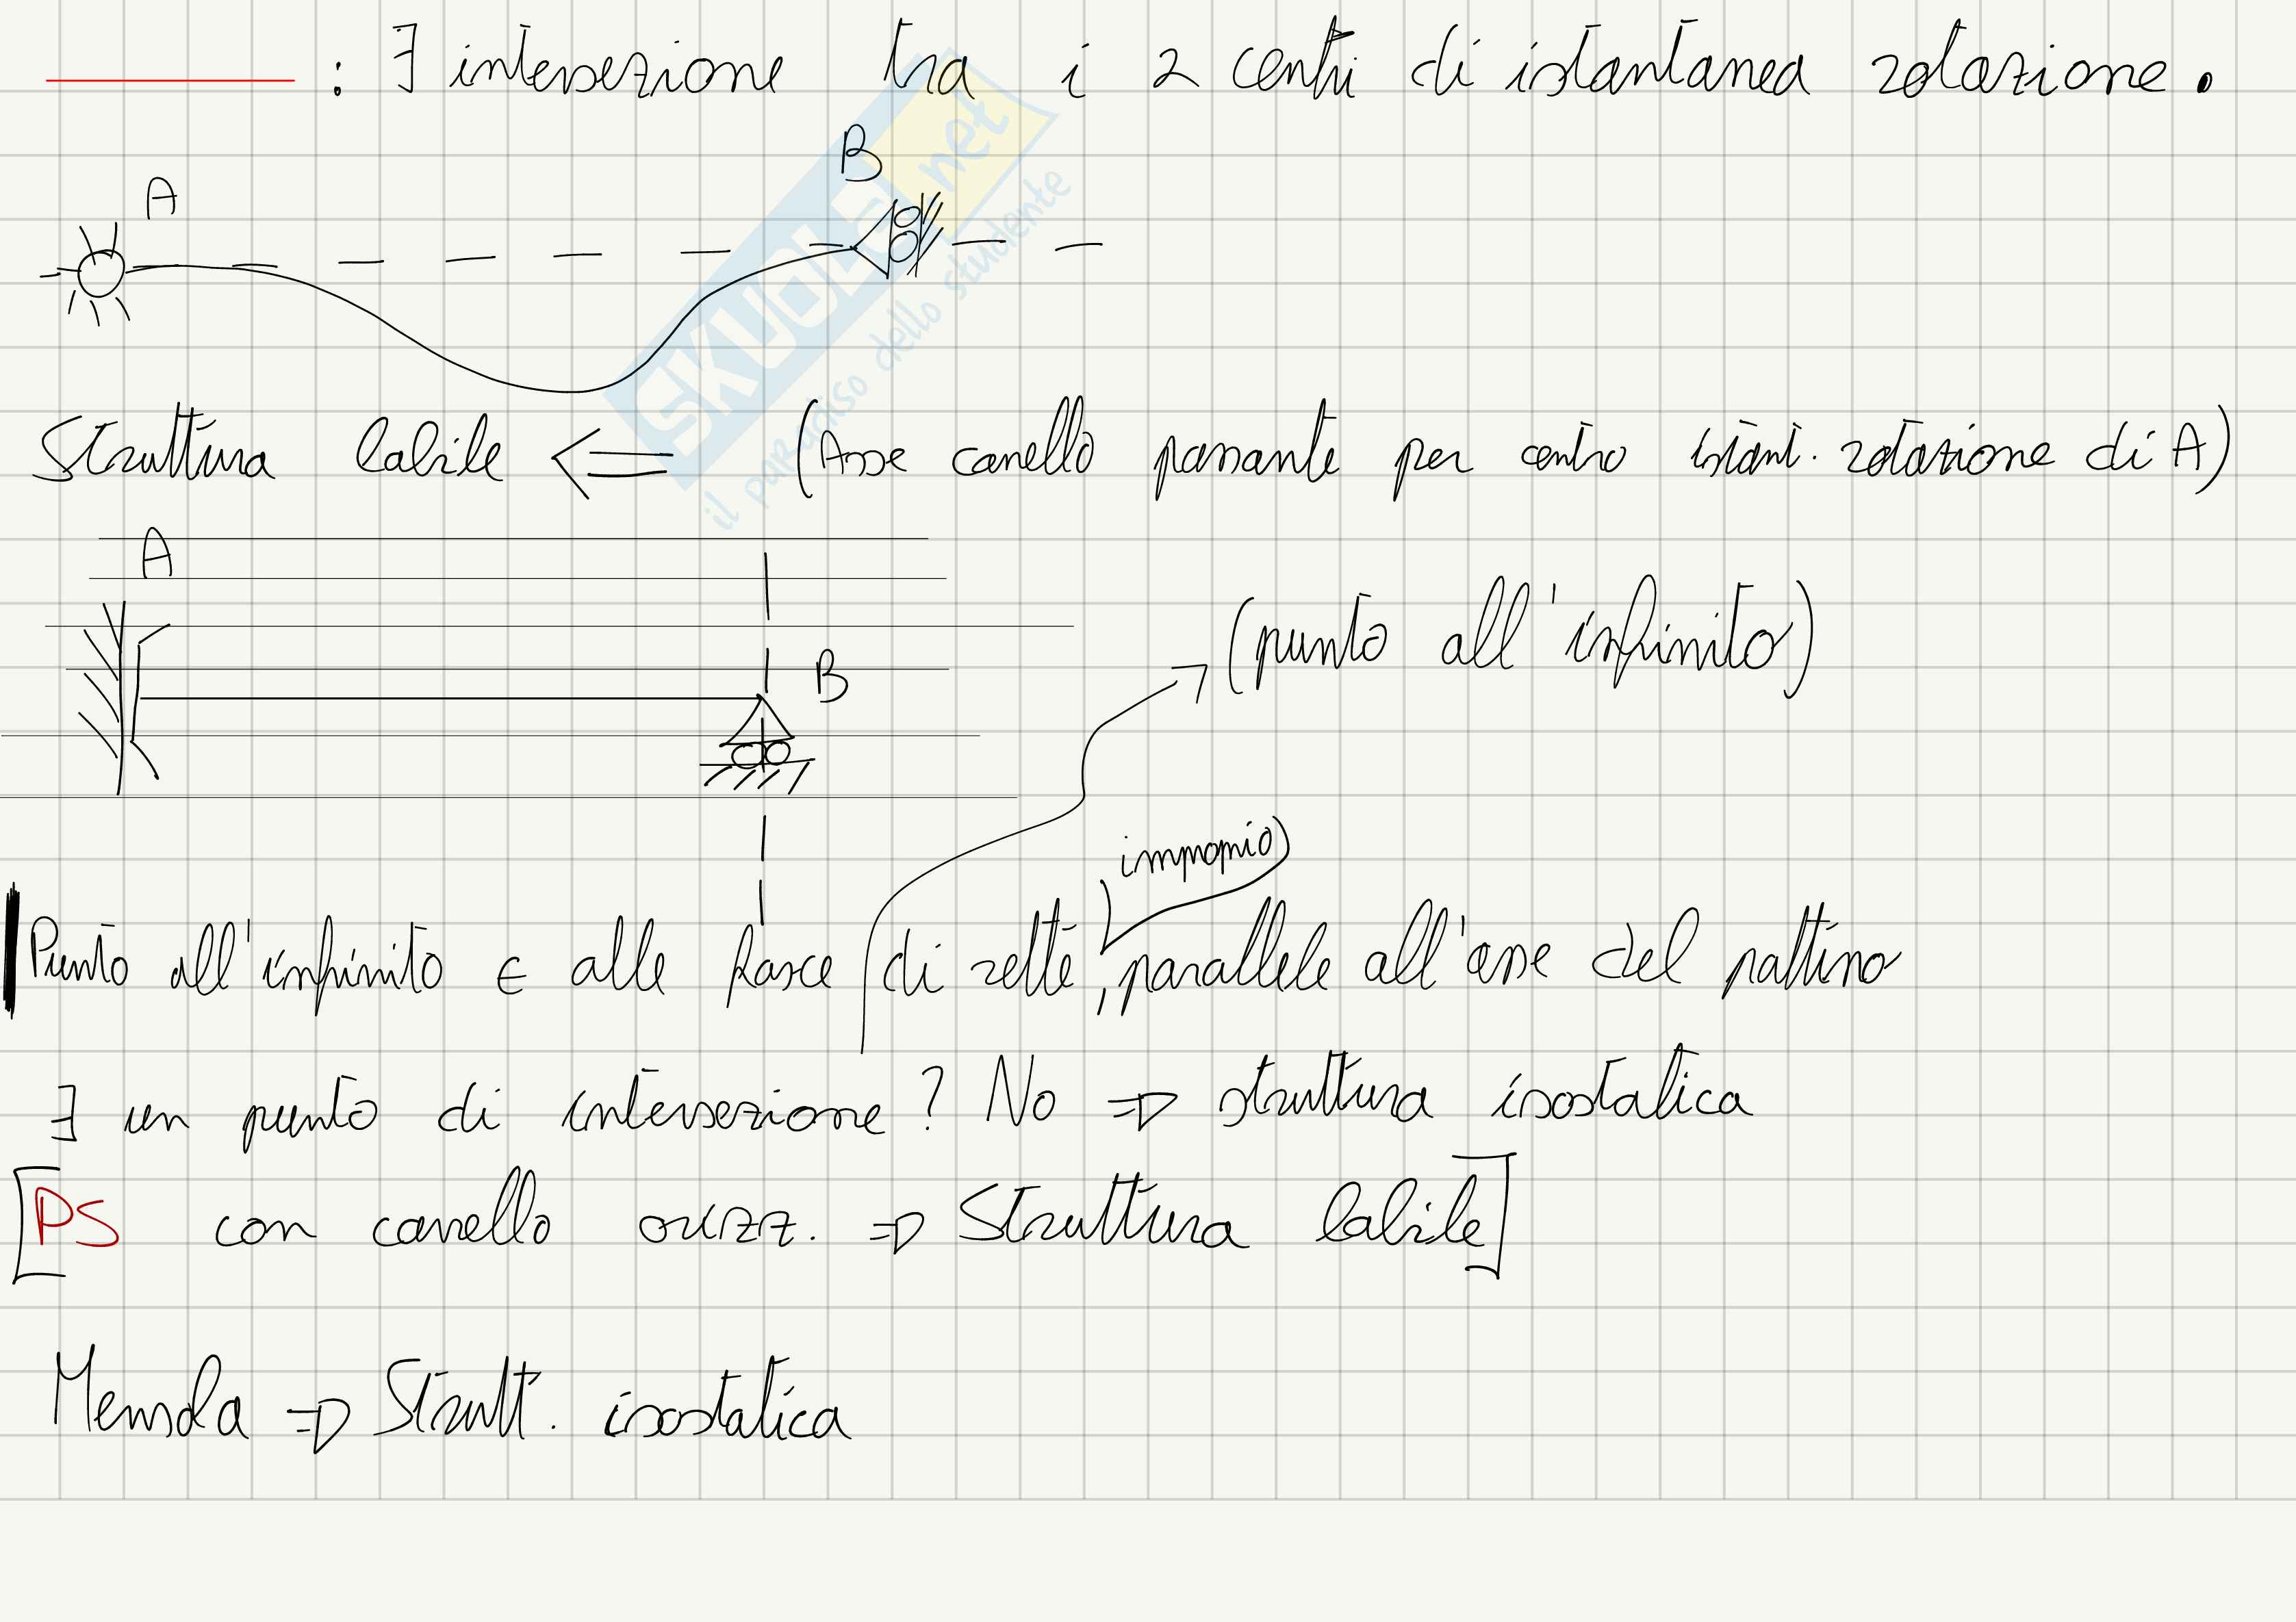 : ∃ intersezione tra i 2 centri di istantanea rotazione.
A
B
Struttura labile <= (Asse carrello passante per centro istant. rotazione di A)
A
B
(punto all'infinito)
improprio
Punto all'infinito ∈ alle fasce di rette, parallele all'asse del pattino
∃ un punto di intersezione? No => struttura isostatica
[PS con carrello orizz. => Struttura labile]
Mensola => Strutt. isostatica
SKUOLA.net
il paradiso dello studente